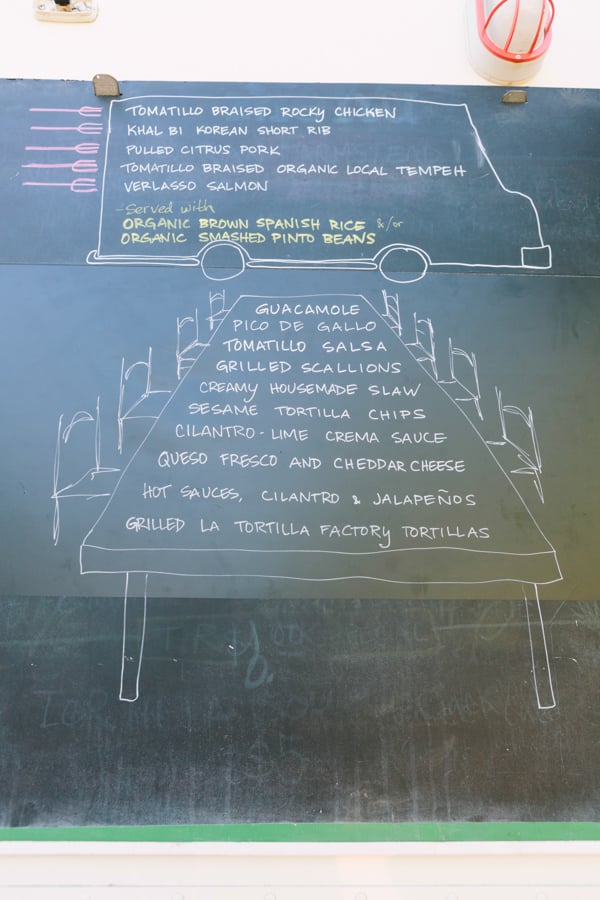 TOMATILLO BRAISED ROCKY CHICKEN
KHAL BI KOREAN SHORT RIB
PULLED CITRUS PORK
TOMATILLO BRAISED ORGANIC LOCAL TEMPEH
VERLASSO SALMON
- Served with
ORGANIC BROWN SPANISH RICE &/or
ORGANIC SMASHED PINTO BEANS
GUACAMOLE
PICO DE GALLO
TOMATILLO SALSA
GRILLED SCALLIONS
CREAMY HOUSEMADE SLAW
SESAME TORTILLA CHIPS
CILANTRO-LIME CREMA SAUCE
QUESO FRESCO AND CHEDDAR CHEESE
HOT SAUCES, CILANTRO & JALAPEÑOS
GRILLED LA TORTILLA FACTORY TORTILLAS